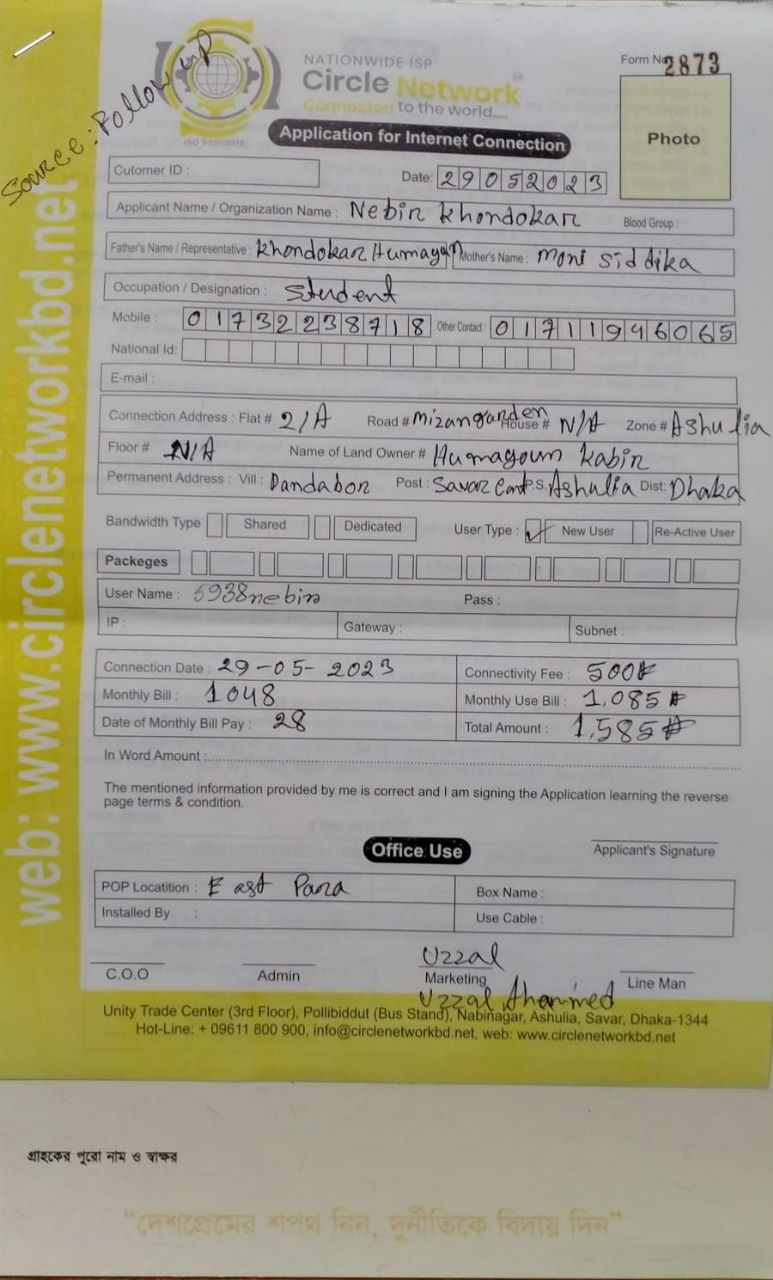 Source: Follow up
NATIONWIDE ISP
Circle Network
Connected to the world....
ISO 9001:2015
Form No 2873
Application for Internet Connection
Photo
Cutomer ID :
Date: 29052023
Applicant Name / Organization Name : Nebir Khondokar Blood Group :
Father's Name / Representative : Khondokar Humayan Mother's Name : Moni Siddika
Occupation / Designation : Student
Mobile : 01732238718 Other Contact : 01711946065
National Id:
E-mail :
Connection Address : Flat # 2/A Road # Mizangarden House # N/A Zone # Ashulia
Floor # N/A Name of Land Owner # Humagoun Kabir
Permanent Address : Vill : Dandabor Post : Savar Cant P.S. Ashulia Dist: Dhaka
Bandwidth Type Shared Dedicated User Type : ✓ New User Re-Active User
Packeges
User Name : 5938nebir Pass :
IP : Gateway : Subnet :
Connection Date : 29-05-2023 Connectivity Fee : 500৳
Monthly Bill : 1048 Monthly Use Bill : 1,085৳
Date of Monthly Bill Pay : 28 Total Amount : 1,585৳
In Word Amount :
The mentioned information provided by me is correct and I am signing the Application learning the reverse
page terms & condition.
Office Use
Applicant's Signature
POP Locatition : East Para Box Name :
Installed By : Use Cable :
Uzzal
C.O.O Admin Marketing Line Man
Uzzal Ahammed
Unity Trade Center (3rd Floor), Pollibiddut (Bus Stand), Nabinagar, Ashulia, Savar, Dhaka-1344
Hot-Line: + 09611 800 900, info@circlenetworkbd.net, web: www.circlenetworkbd.net
web: www.circlenetworkbd.net
গ্রাহকের পুরো নাম ও স্বাক্ষর
“দেশপ্রেমের শপথ নিন, দুর্নীতিকে বিদায় দিন”